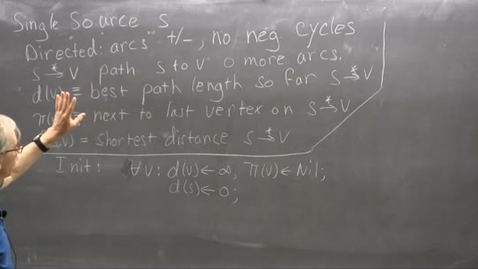 Single Source s
Directed: arcs +/-, no neg cycles
s *→ v path s to v 0 more arcs.
d(v) ≡ best path length so far s *→ v
π( next to last vertex on s *→ v
(v) = shortest distance s *→ v
Init: ∀v: d(v) ← ∞, π(v) ← Nil;
d(s) ← 0;